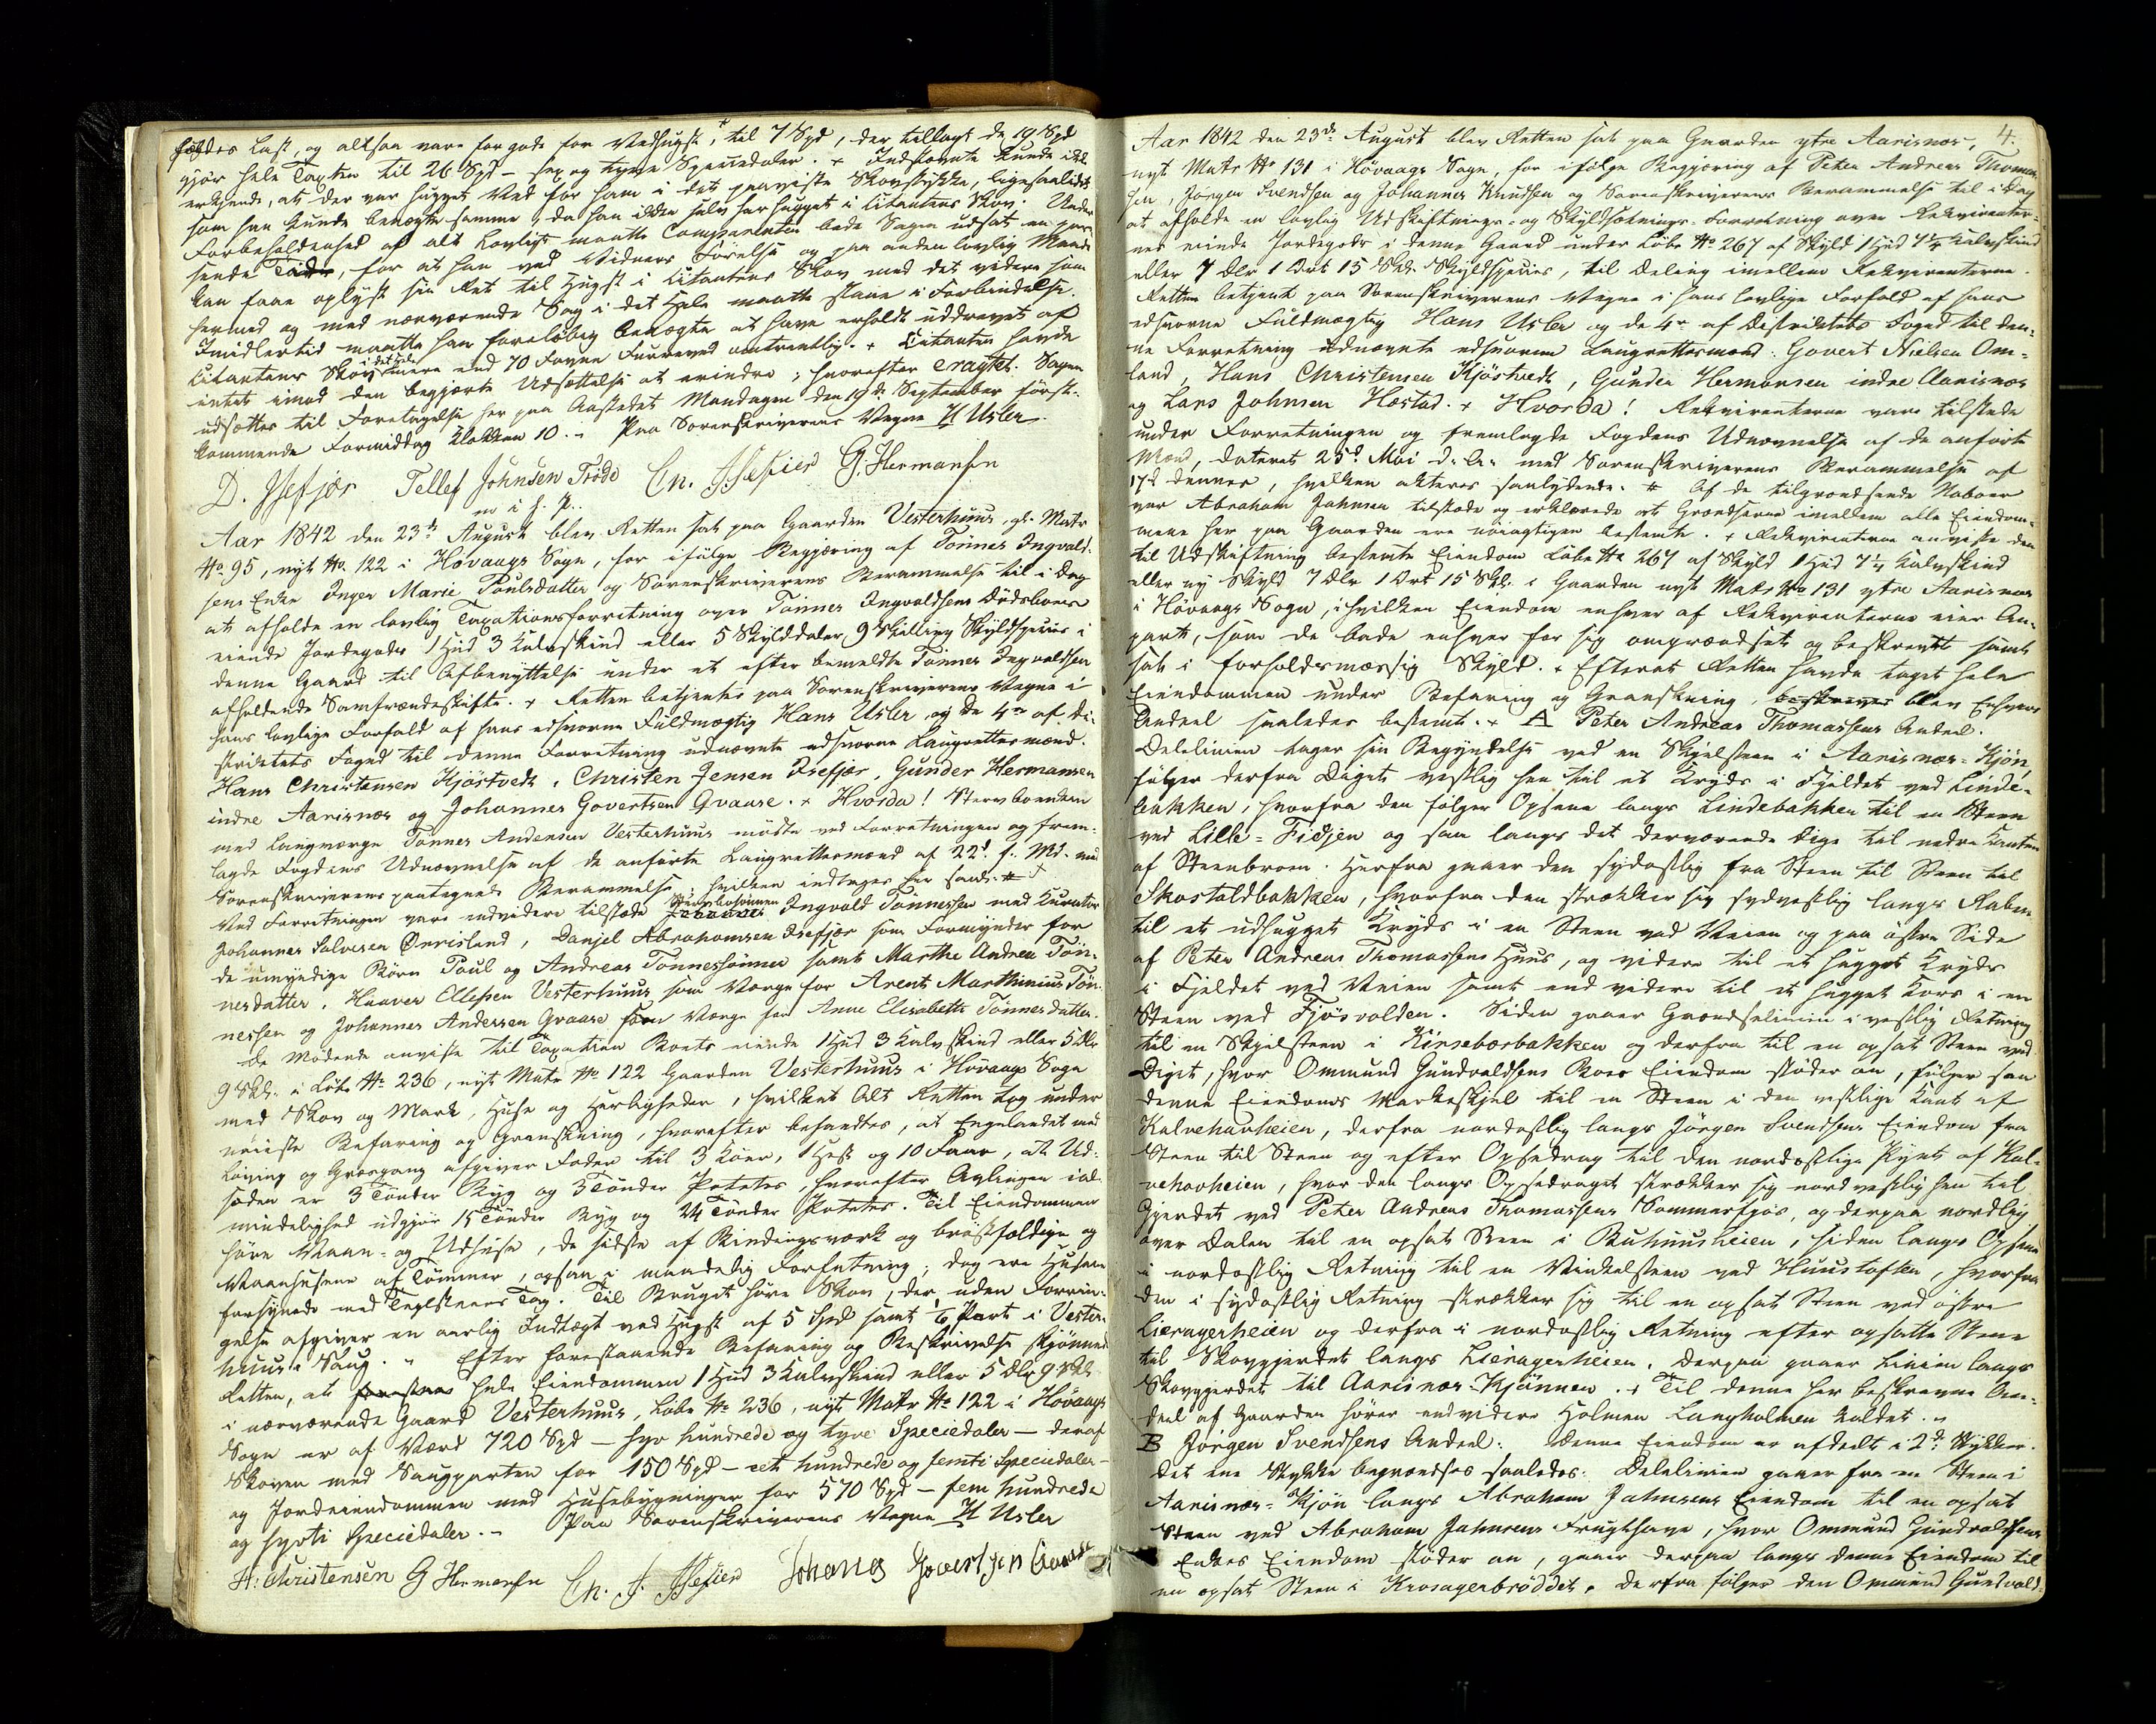 fuldes Last, og altsaa vare for gode for Vedhugst, til 7 Spd, der tillagt de 19 Spd
gjør hele Taxten til 26 Spd – sex og tyve Speciedaler. + Indstevnte kunde ikke
erkjende, at der var hugget Ved for ham i det paaviste Skovstykke, ligesaalidet
som han kunde benægte samme, da han ikke selv har hugget i Citantens Skov. Under
Forbeholdenhed af alt Lovligt maatte Comparenten bede Sagen udsat en pas-
sende Tid, for at han ved Vidners Førelse og paa anden lovlig Maade
kan faae oplyst sin Ret til Hugst i Citantens Skov med det videre som
hermed og med nærværende Sag i det Hele maatte staae i Forbindelse.
Imidlertid maatte han foreløbig benægte at have erholdt uddrevet af
Citantens Skov i det hele mere end 70 Favne Furueved omtrentlig. + Citanten havde
intet imod den begjærte Udsættelse at erindre; hvorefter eragtet: Sagen
udsættes til Foretagelse her paa Aastedet Mandagen den 19de September først-
kommende Formiddag Klokken 10. – Paa Sorenskriverens Vegne H Usler
D. Isefjær Tellef Johnsen Trøde Cn. J. Isefier G. Hermansen
m i f. P.
Aar 1842 den 23de August blev Retten sat paa Gaarden Vesterhuus, gl. Matr
No. 95, nyt No. 122 i Høvaags Sogn, for ifølge Begjæring af Tønnes Ingvald-
sens Enke Inger Marie Poulsdatter og Sorenskriverens Berammelse til i Dag
at afholde en lovlig Taxationsforretning over Tønnes Ingvaldsens Dødsboes
eiende Jordegods 1 Hud 3 Kalvskind eller 5 Skylddaler 9 Skilling Skyldspecies i
denne Gaard til Afbenyttelse under et efter bemeldte Tønnes Ingvaldsen
afholdende Samfrændeskifte. + Retten betjentes paa Sorenskriverens Vegne i
hans lovlige Forfald af hans edsvorne Fuldmægtig Hans Usler og de 4re af Di-
striktets Foged til denne Forretning udnævnte edsvorne Laugrettesmænd.
Hans Christensen Kjøstvedt, Christen Jensen Isefjær, Gunder Hermansen
indre Aarisnæs og Johannes Govertsen Qvaase. + Hvorda! Stervboenken
med Laugværge Tønnes Andersen Vesterhuus mødte ved Forretningen og frem-
lagde Fogdens Udnævnelse af de anførte Laugrettesmænd af 22d f. Md. med
Sorenskriverens paategnede Berammelse; hvilken indtages her saal. #
Ved Forretningen vare endvidere tilstæde Stervbosønnen Ingvald Tønnessen med Kurator
Johannes Salvesen Ørrisland, Danjel Abrahamsen Isefjær som Formynder for
de umyndige Børn Poul og Andreas Tønnessønner samt Marthe Andrea Tøn-
nesdatter, Haaver Ellefsen Vesterhuus som Værge for Arent Marthinius Tøn-
nessen og Johannes Andersen Qvaase som Værge for Anne Elisabeth Tønnesdatter.
De Mødende anviste til Taxation Boets eiende 1 Hud 3 Kalvskind eller 5 Dlr
9 Skl. i Løbe No. 236, nyt Matr No. 122 Gaarden Vesterhuus i Høvaags Sogn
med Skov og Mark, Huse og Herligheder, hvilket Alt Retten tog under
nøieste Befaring og Granskning, hvorefter befandtes, at Engelandet med
Løving og Græsgang afgiver Foder til 3 Køer, 1 Hest og 10 Faar, at Ud-
sæden er 3 Tønder Byg og 3 Tønder Potetes, hvorefter Avlingen i al-
mindelighed udgjør 15 Tønder Byg og 24 Tønder Potetes. Til Eiendommen
høre Vaan- og Udhuse, de sidste af Bindingsværk og brøstfældige og
Vaanhusene af Tømmer, ogsaa i maadelig Forfatning; dog ere Husene
forsynede med Teglsteens Tag. Til Bruget hører Skov, der uden Forrin-
gelse afgiver en aarlig Indtægt ved Hugst af 5 Spd samt 1/6 Part i Vester-
huus Saug. „ Efter forestaaende Befaring og Beskrivelse skjønnede
Retten, at hele Eiendommen 1 Hud 3 Kalvskind eller 5 Dlr 9 Skl
i nærværende Gaard Vesterhuus, Løbe No. 236, nyt Matr No. 122 i Høvaags
Sogn er af Værd 720 Spd – syv hundrede og tyve Speciedaler – deraf
Skoven med Saugparten for 150 Spd – eet hundrede og femti Speciedaler –
og Jordeiendommen med Husebygninger for 570 Spd – fem hundrede
og sytti Speciedaler. – Paa Sorenskriverens Vegne H Usler
H: Christensen G Hermansen Cn. J. Isefier Iohanes Govertsen Qvaase
4.
Aar 1842 den 23de August blev Retten sat paa Gaarden ytre Aarisnæs,
nyt Matr No 131 i Høvaags Sogn, for ifølge Begjæring af Peter Andreas Thomas-
sen, Jørgen Svendsen og Johannes Knudsen og Sorenskriverens Berammelse til i Dag
at afholde en lovlig Udskiftnings- og Skyldsætnings-Forretning over Rekvirenter-
nes eiende Jordegods i denne Gaard under Løbe No. 267 af Skyld 1 Hud 7 1/4 Kalvskind
eller 7 Dlr 1 Ort 15 Skl. Skyldspecies, til Deling imellem Rekvirenterne.
Retten betjent paa Sorenskriverens Vegne i hans lovlige Forfald af hans
edsvorne Fuldmægtig Hans Usler og de 4re af Distriktets Foged til den-
ne Forretning udnævnte edsvorne Laugrettesmænd: Govert Nielsen Om-
land, Hans Christensen Kjøstvedt, Gunder Hermansen indre Aarisnæs
og Lars Johnsen Hæstad. + Hvorda! Rekvirenterne vare tilstede
under Forretningen og fremlagde Fogdens Udnævnelse af de anførte
Mænd, dateret 25d Mai d. A. med Sorenskriverens Berammelse af
17d dennes, hvilken akteres saalydende. # Af de tilgrændsende Naboer
var Abraham Jahnsen tilstæde og erklærede at Grændserne imellem alle Eiendom-
mene her paa Gaarden ere nøiagtigen bestemte. + Rekvirenterne anviste den
til Udskiftning bestemte Eiendom Løbe No 267 af Skyld 1 Hud 7 1/4 Kalvskind
eller ny Skyld 7 Dlr 1 Ort 15 Skl. i Gaarden nyt Matr No 131 ytre Aarisnæs
i Høvaags Sogn, i hvilken Eiendom enhver af Rekvirenterne eier An-
part, som de bade enhver for sig omgrændset og beskrevet samt
sat i forholdsmæssig Skyld. + Efterat Retten havde taget hele
Eiendommen under Befaring og Granskning, beskrives blev Enhvers
Andeel saaledes bestemt. + A Peter Andreas Thomassens Andeel.
Delelinien tager sin Begyndelse ved en Skjelsteen i Aarisnæs-Kjøn,
følger derfra Diget vestlig hen til et Kryds i Fjeldet ved Linde-
bakken, hvorfra den følger Opsene langs Lindebakken til en Steen
ved Lille-Fidjen og saa langs det derværende Dige til nedre Kanten
af Steenbroen. Herfra gaaer den sydostlig fra Steen til Steen til
Skostoldbakken, hvorfra den strækker sig sydvestlig langs Raben
til et udhugget Kryds i en Steen ved Veien og paa østre Side
af Peter Andreas Thomassens Huus, og videre til et hugget Kryds
i Fjeldet ved Veien samt end videre til et hugget Kors i en
Steen ved Fjøsvolden. Siden gaaer Grændselinien i vestlig Retning
til en Skjelsteen i Kinsebærbakken og derfra til en opsat Steen ved
Diget, hvor Ommund Gundvaldsens Boes Eiendom støder an, følger saa
denne Eiendoms Markeskjel til en Steen i den vestlige Kant af
Kalvehavheien, derfra nordostlig langs Jørgen Svendsens Eiendom fra
Steen til Steen og efter Opsedrag til den nordostlige Pynt af Kal-
vehavheien, hvor den langs Opsedraget strækker sig nordvestlig hen til
Gjerdet ved Peter Andreas Thomassens Sommerfjøs, og derpaa nordlig
over Dalen til en opsat Steen i Buhuusheien, siden langs Opsene
i nordostlig Retning til en Vinkelsteen ved Huustoften, hvorfra
den i sydostlig Retning strækker sig til en opsat Steen ved østre
Lieragerheien og derfra i nordostlig Retning efter opsatte Stene
til Skovgjerdet langs Lieragerheien. Derpaa gaaer Linien langs
Skovgjerdet til Aarisnæs-Kjønnen. + Til denne her beskrevne An-
deel af Gaarden hører endvidere Holmen Langholmen kaldet. „
B Jørgen Svendsens Andeel: Denne Eiendom er afdeelt i 2de Stykker.
Det ene Stykke begrændses saaledes: Delelinien gaaer fra en Steen i
Aarisnæs-Kjøn langs Abraham Jahnsens Eiendom til en opsat
Steen ved Abraham Jahnsens Frugthave, hvor Ommund Gundvaldsens
Enkes Eiendom støder an, gaaer derpaa langs denne Eiendom til
en opsat Steen i Krosagerbrøddet. Derfra følger den Ommund Gundvald-